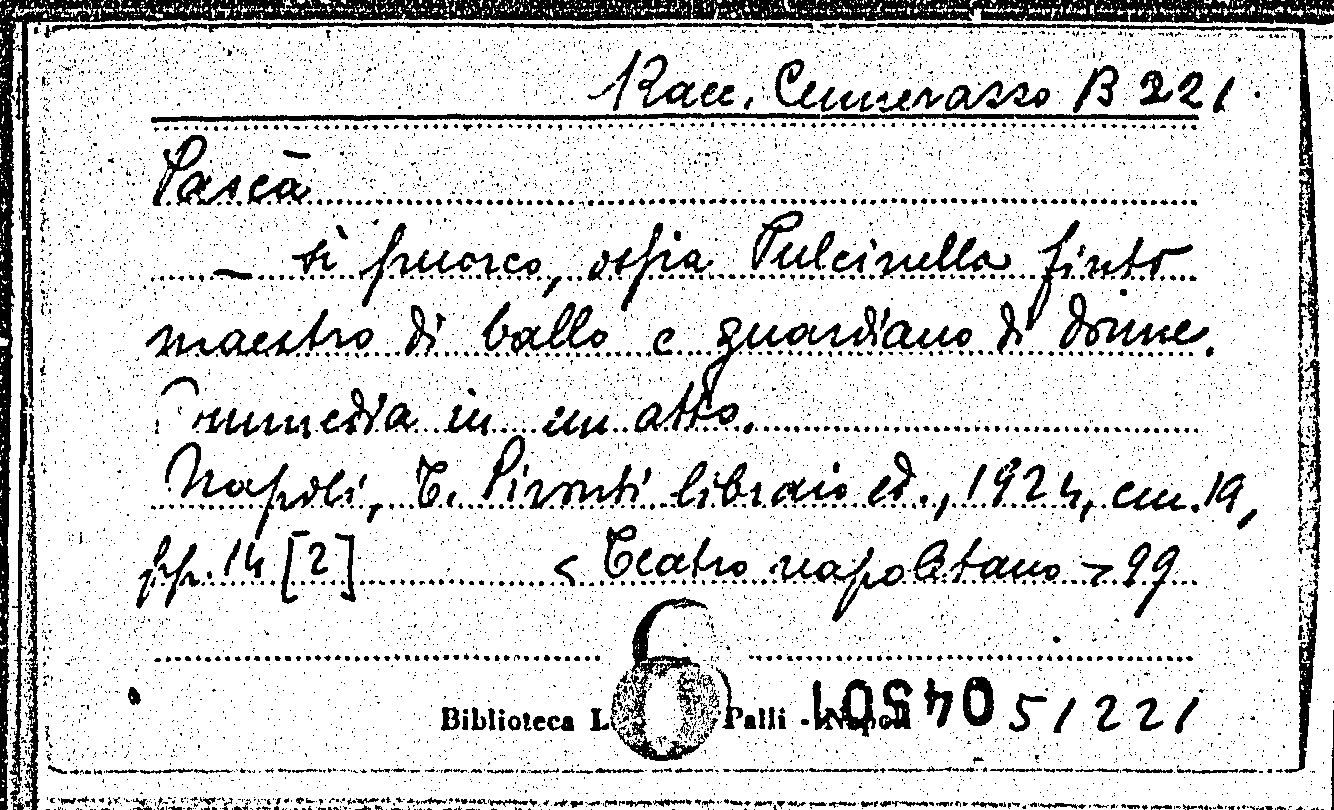 Racc. Cennerazzo B 221.
Pascà
— sì puorco, ossia Pulcinella finto
maestro di ballo e guardiano di donne.
Commedia in un atto.
Napoli, T. Pironti libraio ed., 1924, cm. 19,
pp. 14 [2] < Teatro napoletano > 99
Biblioteca L Palli - Napoli 51221